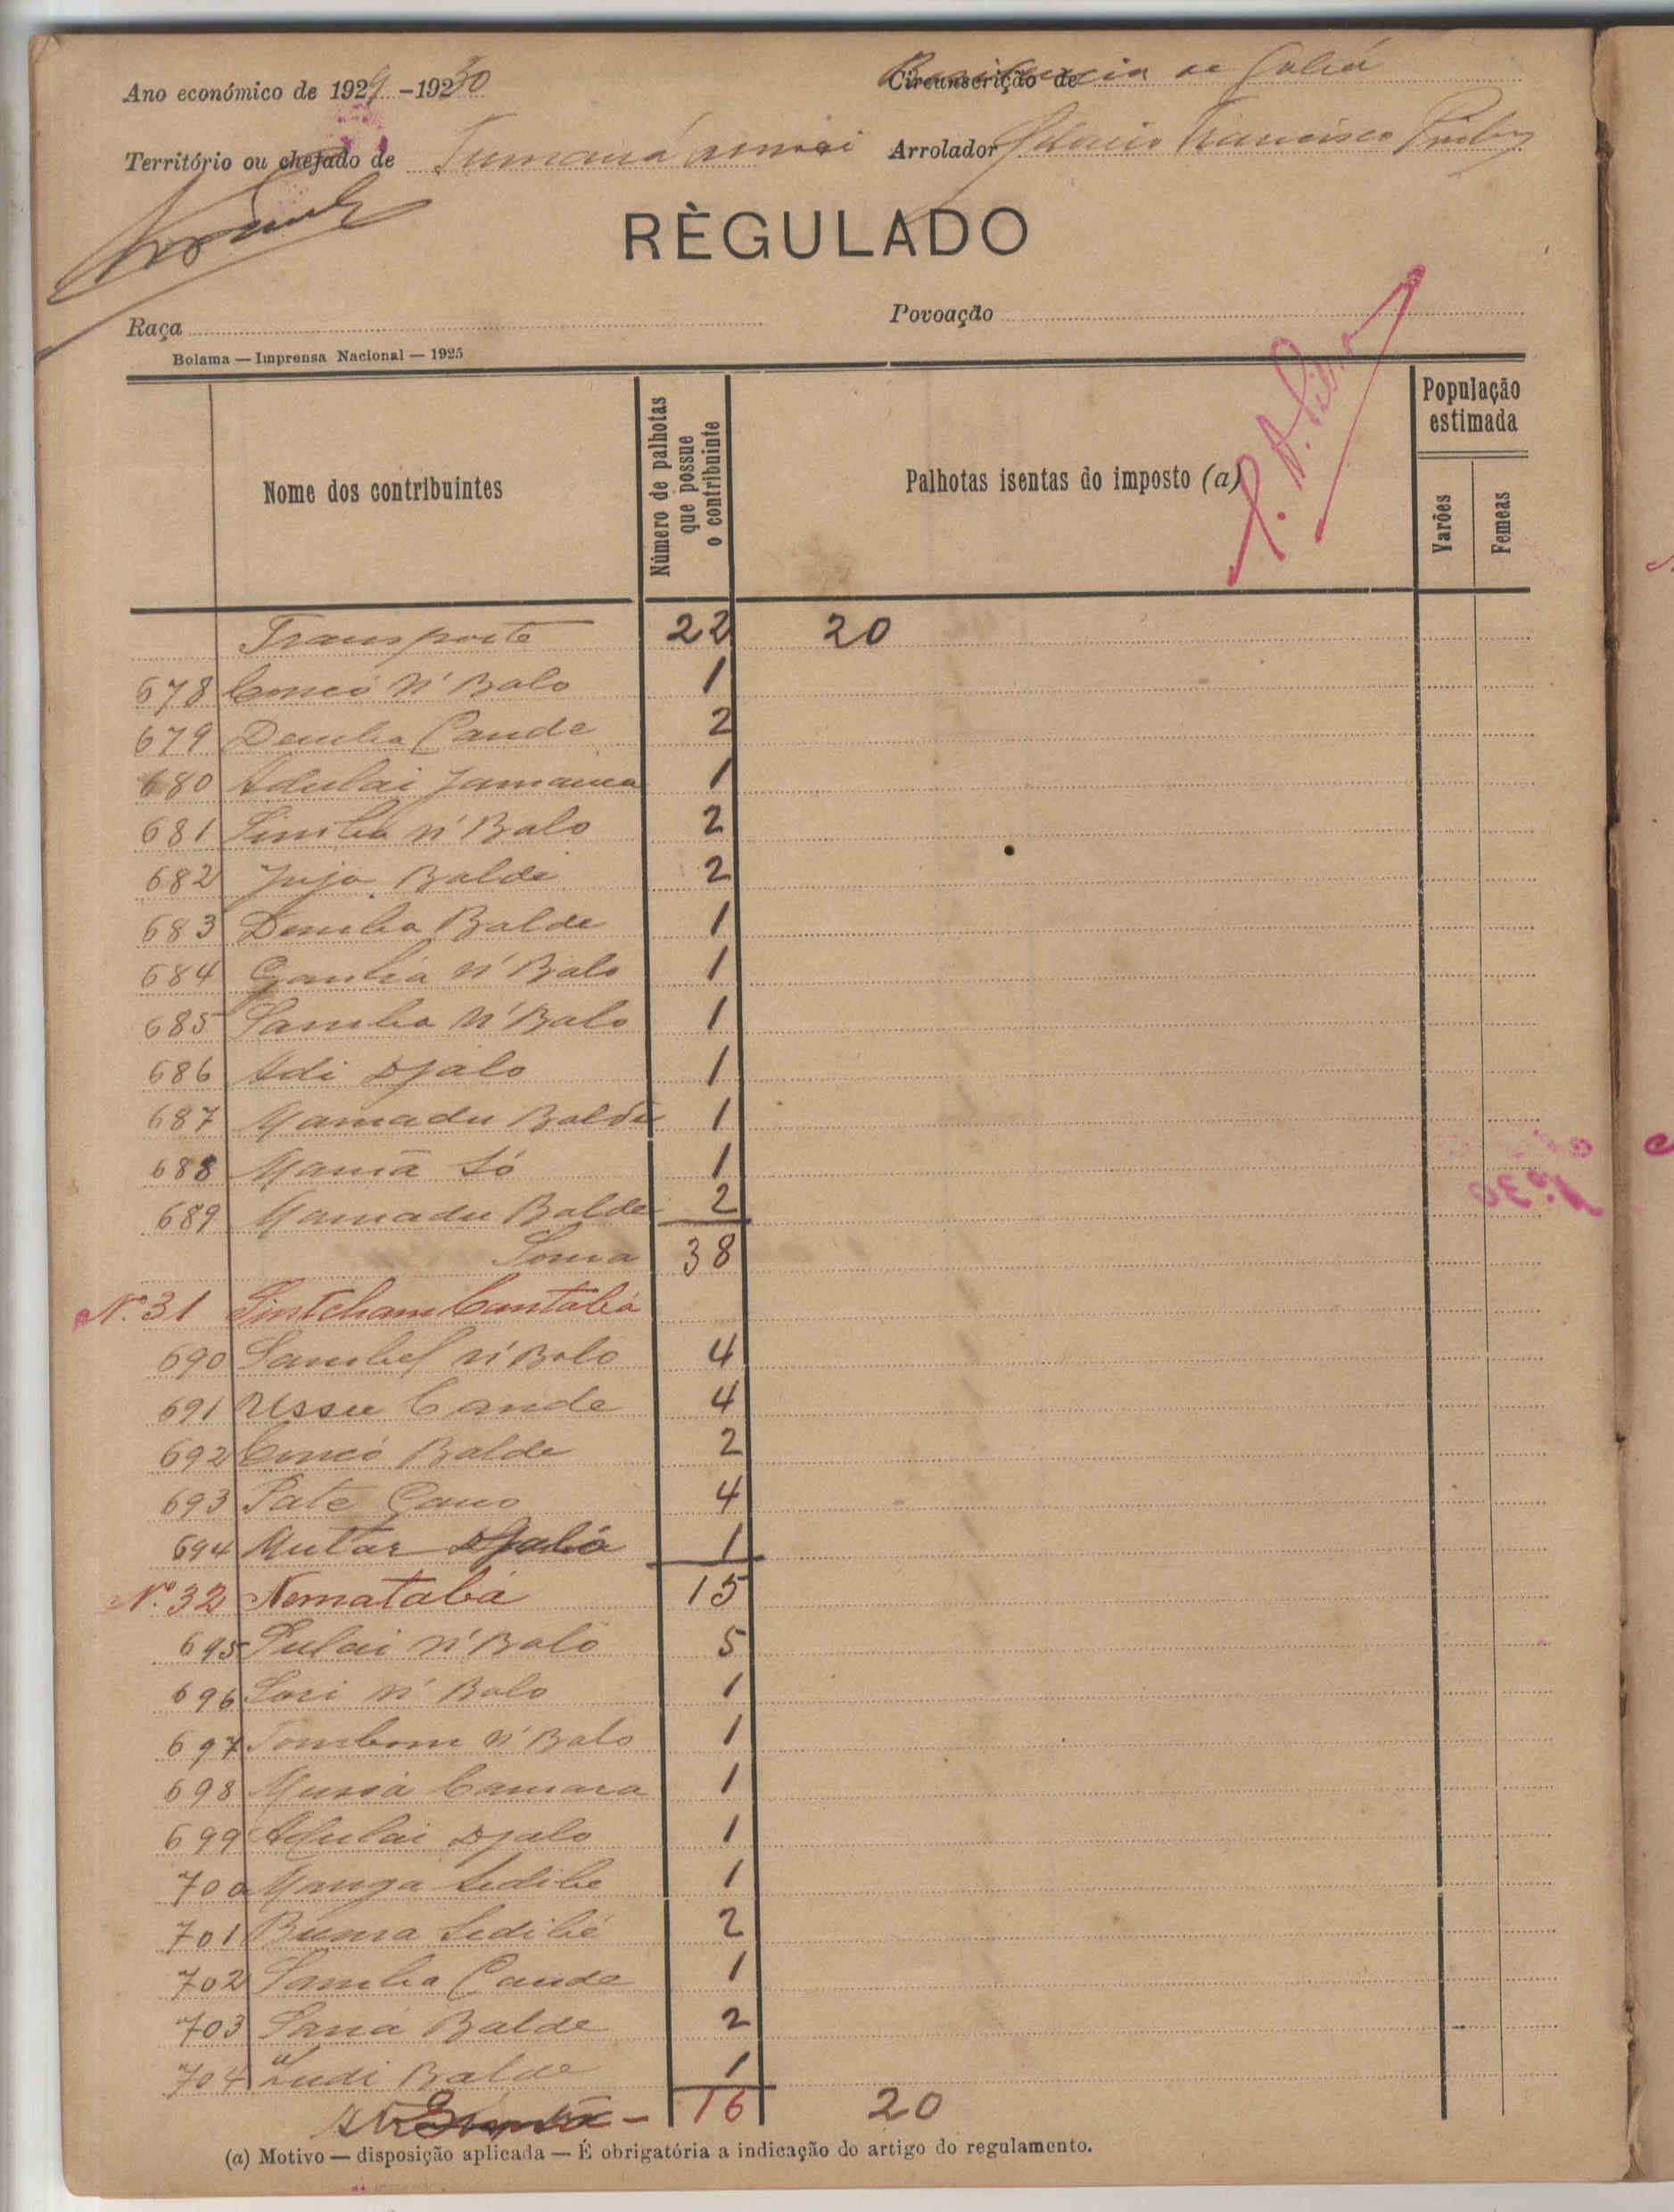 Ano económico de 1929-1930
Circunscrição de Gabú
Território ou chefado de Tumaná
Arrolador Francisco
RÈGULADO
Raça
Povoação
Bolama — Imprensa Nacional — 1925
Nome dos contribuintes
Número de palhotas que possue o contribuinte
Palhotas isentas do imposto (a)
População estimada
Varões
Femeas
Transporte 22 20
678 N' Balo 1
679 Demba Cande 2
680 Adulai 1
681 Simba N' Balo 2
682 Juja Balde 2
683 Demba Balde 1
684 N' Balo 1
685 Samba N' Balo 1
686 Adi Djalo 1
687 Mamadu Balde 1
688 Só 1
689 Mamadu Balde 2
Soma 38
Nº 31
690 Sambel N' Balo 4
691 Ussu Cande 4
692 Balde 2
693 Pate 4
694 Mutar Djaló 1
Nº 32 Nematabá 15
695 N' Balo 5
696 Sori N' Balo 1
697 N' Balo 1
698 Camara 1
699 Djalo 1
700 Sedibe 1
701 Sedibé 2
702 Samba Cande 1
703 Sana Balde 2
704 Balde 1
16 20
(a) Motivo — disposição aplicada — É obrigatória a indicação do artigo do regulamento.